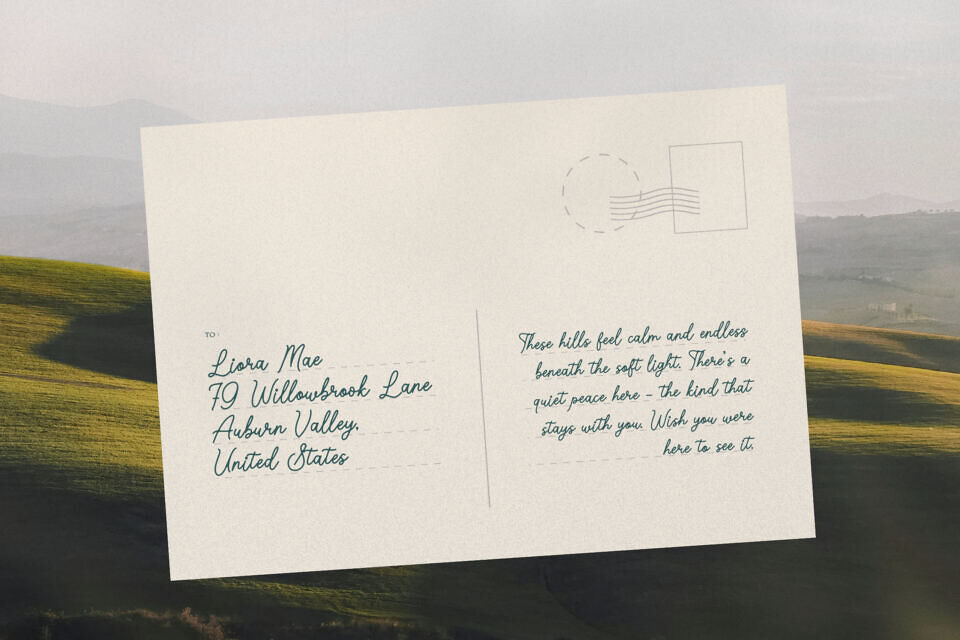 TO :
Liora Mae
79 Willowbrook Lane
Auburn Valley,
United States
These hills feel calm and endless
beneath the soft light. There's a
quiet peace here – the kind that
stays with you. Wish you were
here to see it.